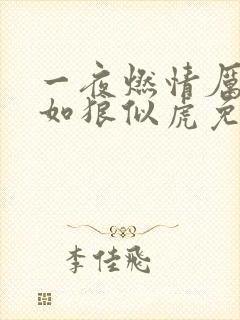 一夜燃情厉
如狼似虎免
李佳飛